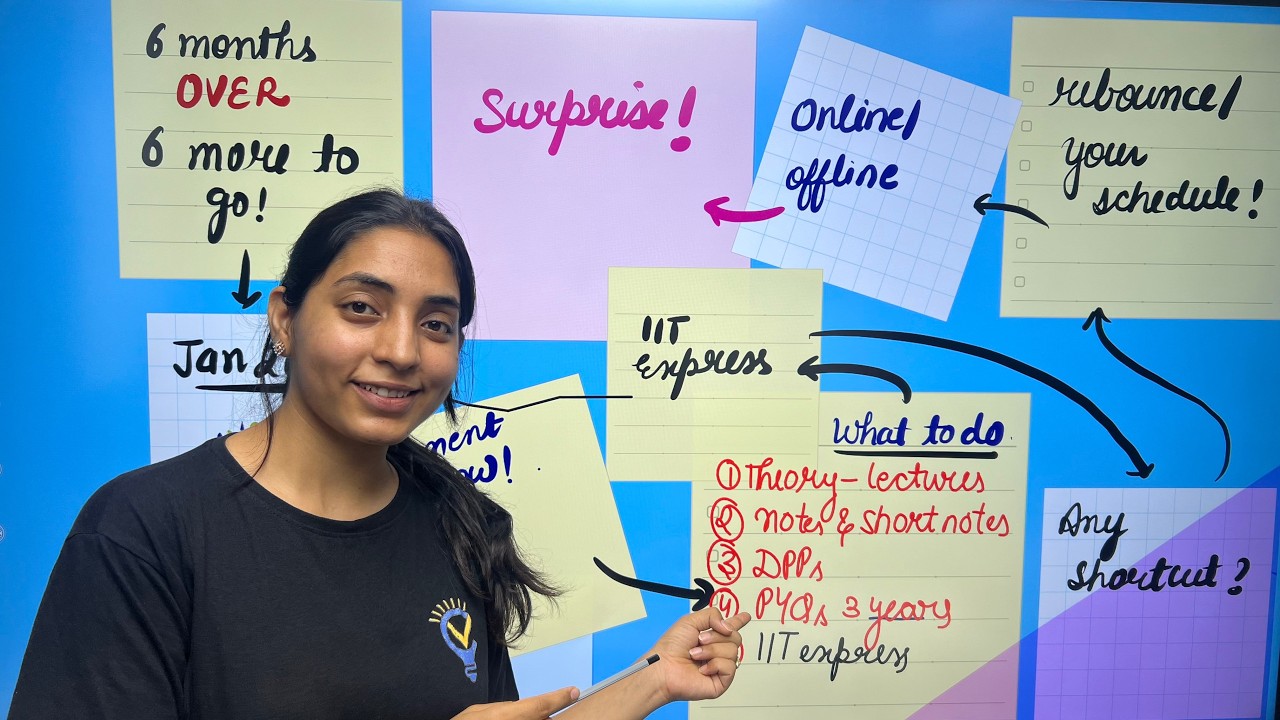 6 months
OVER
6 more to
go!
Jan
Surprise!
Online/
offline
rebounce/
your
schedule!
IIT
Express
What to do
① Theory - lectures
② notes & short notes
③ DPPs
④ PYQs 3 years
IIT express
Any
shortcut?